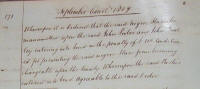 September Court 1809
171
Whereupon it is Ordered that the said negro Alexander
manumitted upon the said John Parker and John
entering into bond in the penalty of $ 500 Conditioned
for preventing the said negro Alexander from becoming
chargeable upon the County. Whereupon the said Parker
entered into bond Agreeable to the said Order